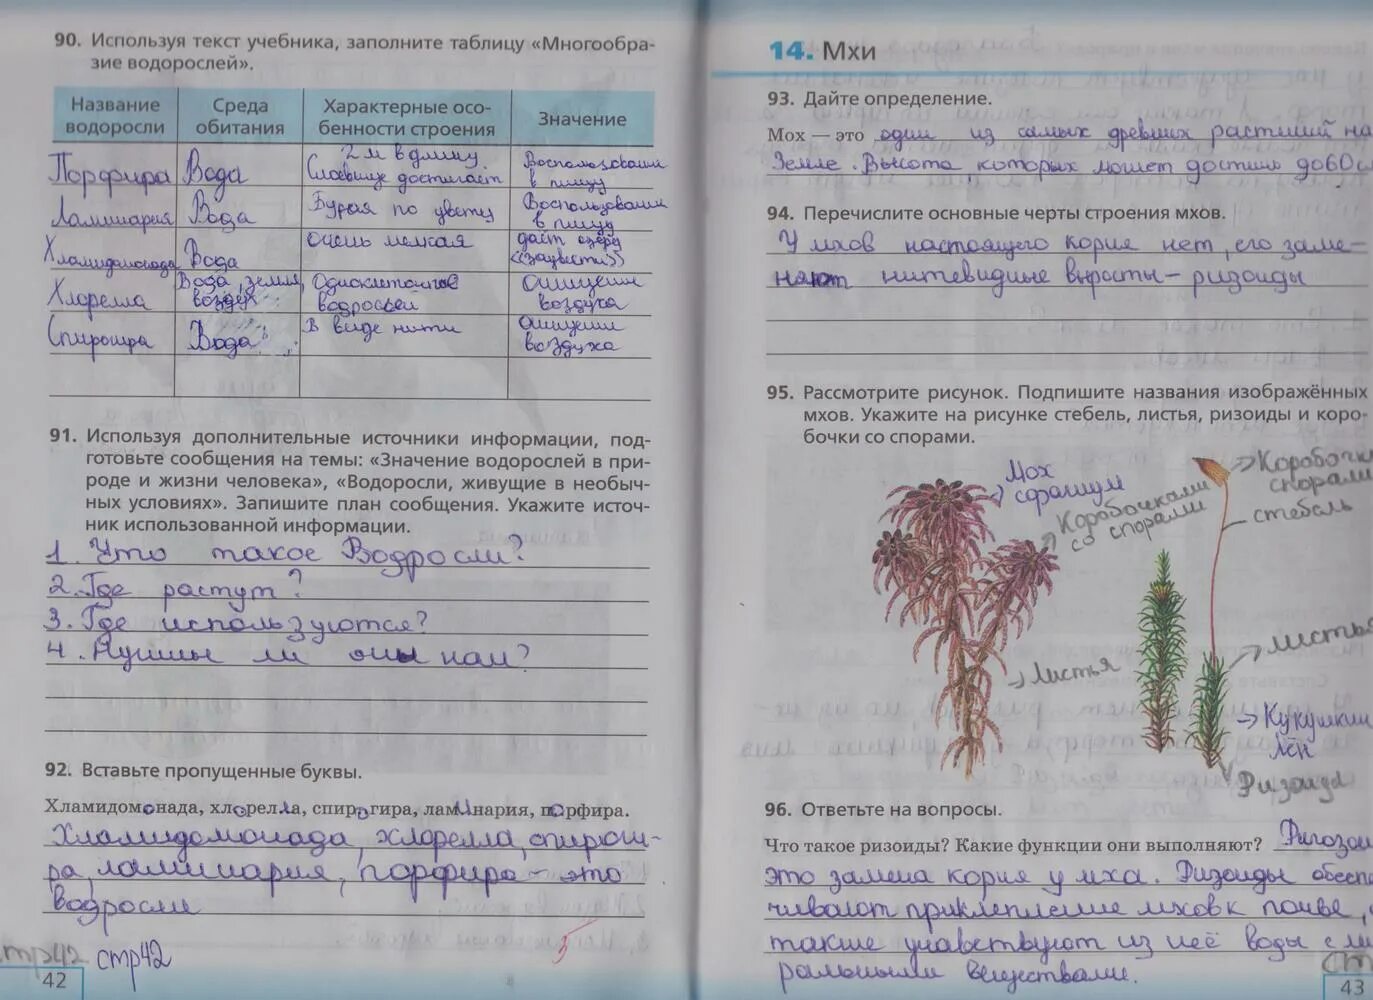 90. Используя текст учебника, заполните таблицу «Многообра-
зие водорослей».
Название водоросли | Среда обитания | Характерные осо-бенности строения | Значение
Порфира | Вода | 2 м в длину. Слоевище достигает | в пищу
Ламинария | Вода | Бурая по цвету | в пищу
Хламидомонада | Вода | очень мелкая | даёт озеру
Хлорелла | Вода, земля, воздух | водоросли | воздуха
Вода | В виде нити | воздуха
91. Используя дополнительные источники информации, под-
готовьте сообщения на темы: «Значение водорослей в при-
роде и жизни человека», «Водоросли, живущие в необыч-
ных условиях». Запишите план сообщения. Укажите источ-
ник использованной информации.
1. Что такое Водросли?
2. Где растут?
3. Где используются?
4. Нужны ли они нам?
92. Вставьте пропущенные буквы.
Хламидомонада, хлорелла, спирогира, ламинария, порфира.
Хламидомонада, хлорелла, спироги-
ра, ламинария, порфира - это
водросли
3
стр42 стр42
42
14. Мхи
93. Дайте определение.
Мох — это один из самых древних растений на
Земле. Высота, которых может достичь до 60 с
94. Перечислите основные черты строения мхов.
У мхов настоящего корня нет, его заме-
няют нитевидные выросты - ризоиды
95. Рассмотрите рисунок. Подпишите названия изображённых
мхов. Укажите на рисунке стебель, листья, ризоиды и коро-
бочки со спорами.
Мох
сфагнум
Коробочками
со спорами
Коробочк
спорами
стебель
Листья
листья
Кукушкин
лён
Ризоида
96. Ответьте на вопросы.
Что такое ризоиды? Какие функции они выполняют?
это замена корня у мха. Ризоиды обесп
чивают прикрепление мхов к почве,
также учавствуют из неё воды с ми
ральными веществами.
ст
43